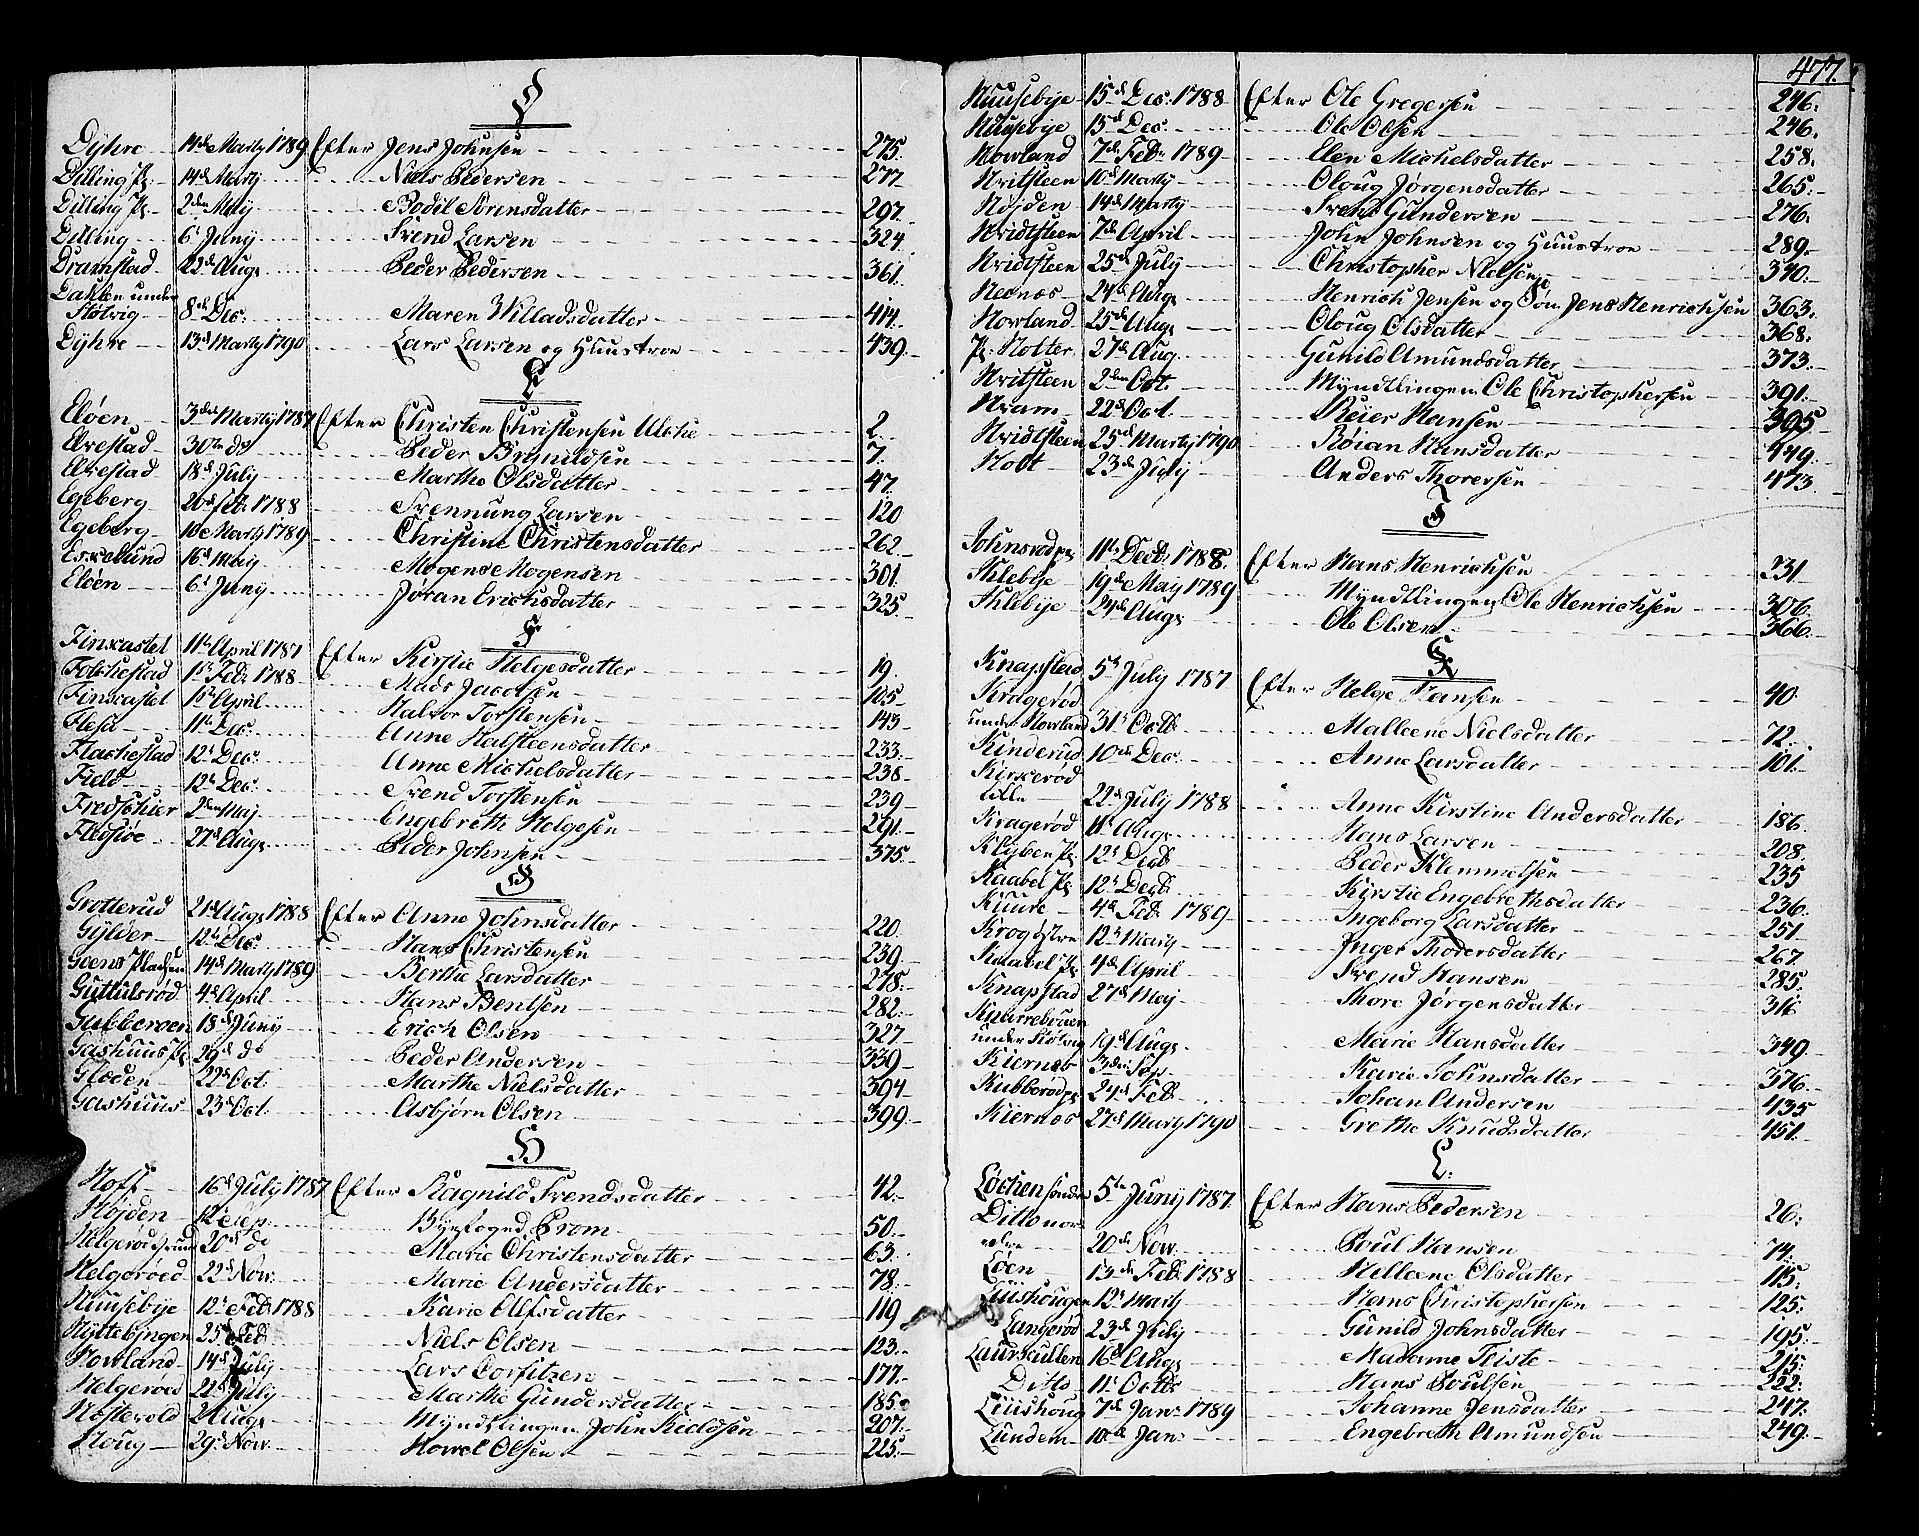 D
Dÿhre 14de Martÿ 1789 Efter Jens Johnsen 275.
Dilling Pl. 14de Martÿ Niels Pedersen 277
Dilling Pl. 2den Maÿ Bodil Sørensdatter 297.
Dilling 6te Junÿ Svend Larsen 324.
Dramstad 22de Aug. Peder Pedersen 361.
Dahlen under
Støtvig 8de Dec: Maren Willadsdatter 414.
Dÿhre 13de Martÿ 1790 Lars Larsen og Huustroe 439.
E
Eløen 3die Martÿ 1787 Efter Christen Christensen 2.
Elvestad 30te do Peder 7.
Elvestad 18de Julÿ Marthe Olsdatter 47.
Egeberg 20de Feb. 1788 Svennung Larsen 120
Egeberg 10de Martÿ 1789 Christine Christensdatter 262.
16de Maÿ Mogens Mogensen 301.
Eløen 6te Junÿ Jøran Erichsdatter 325.
F
Finxastet 11te April 1787 Efter Kirstie Helgesdatter 19.
Folchestad 11te Feb. 1788 Mads Jacobsen 105
Finxastet 11te April Halvor Torstensen 143
11te Dec. Anne Halsteensdatter 233.
Flachestad 12te Dec. Anne Michelsdatter 238
Field 12te Dec. Svend Torstensen 239
Fredschier 2den Maj Engebreth Helgesen 291.
27de Aug. Peder Johnsen 375.
G
Grotterud 21de Aug. 1788 Efter Anne Johnsdatter 220.
Gÿlder 12te Dec. Hans Christensen 239.
Goens Pladsen 14de Martÿ 1789 Berthe Larsdatter 278.
Guttulsrød 4de April Hans Bentsen 282.
Gubberoen 18de Junÿ Erich Olsen 327
Gashuus Pl. 29de do Peder Andersen 339
Gloden 22de Oct. Marthe Nielsdatter 394
Gashuus 23de Oct. Asbjørn Olsen 399.
H
Hoff 16de Julÿ 1787 Efter Ragnild Svendsdatter 42.
Højden 12te Sep. Bÿefoged Prom 50.
Helgerød 20de do Marie Christensdatter 63.
Helgerøed 22de Nov. Marie Andersdatter 78.
Huusebÿe 12te Feb. 1788 Karie Alfsdatter 119
Hÿttebÿngen 25de Feb. Niels Olsen 123.
Howland 14de Julÿ Lars Corfitzen 177.
Helgerøed 22de Julÿ Marthe Gundersdatter 185.
Høstevold 2 Aug. Mÿndtlingen John Kieldsen 207.
Houg 29de Nov. Howel Olsen 225.
477.
Huusebÿe 15de Dec. 1788 Efter Ole Gregersen 246.
Huusebÿe 15de Dec. Ole Olsen 246.
Howland 7de Feb. 1789 Elen Michelsdatter 258.
Hvitsteen 10de Martÿ Oloug Jørgensdatter 265.
Højden 14de Martÿ Svend Gundersen 276.
Hvidtsteen 7de April John Johnsen og Huustroe 289.
Hvidtsteen 25de Julÿ Christopher Nielsen 340.
24de Aug. Henrich Jensen og Søn Jens Henrichsen 363.
Howland 25de Aug. Oloug Olsdatter 368.
Pl. Holter 27de Aug. Gunild Amundsdatter 373.
Hvitsteen 2den Oct. Mÿndtlingen Ole Christophersen 391.
Hvam 22de Oct. Reier Hansen 395
Hvidtsteen 25de Martÿ 1790 Roian Hansdatter 449.
Holt 23de Julÿ Anders Thoresen 473.
J
Johnsrød pl. 11te Decb. 1788. Efter Hans Henrichsen 231
Jhlebÿe 19de Maÿ 1789 Mÿndtlingen Ole Henrichsen 306
Jhlebÿe 24de Aug. Ole Olsen 366
K
Knapstad 5te Julÿ 1787 Efter Helge Hansen 40
Kragerød
under Howland 31te Octb. Malleene Nielsdatter 72.
Kinderud 10de Dec. Anne Larsdatter 101.
Kirkerød
Lille 22de Julÿ 1788 Anne Kirstine Andersdatter 186.
Kragerød 11te Aug. Hans Larsen 208.
Klÿben Pl. 12te Decb. Peder Klemmetsen 235
Kaabel Pl. 12te Decb. Kirstie Engebrethsdatter 236.
Kuure 4de Feb. 1789 Ingeborg Larsdatter 251.
Krog østre 12te Martÿ Inger Thoresdatter 267
Kaabel Pl. 4de April Svend Hansen 285.
Knapstad 27de Maj Thore Jørgensdatter 316
Knarrebouen
under Støtvig 19de Aug. Marie Hansdatter 349.
Kiernes 3die Sep. Karie Johnsdatter 376.
Kubberød pl. 24de Feb. Johan Andersen 435
Kiernes 27de Martÿ 1790 Grethe Knudsdatter 451.
L.
Løchen søndre 5te Junÿ 1787. Efter Hans Pedersen 26.
Ditto nor
dre 20de Nov. Poul Hansen 74.
Løen 13de Feb. 1788 Helleene Olsdatter 115.
Liushougen 12te Martÿ Hans Christophersen 125.
Langerød 23de Julÿ Gunild Johnsdatter 195.
Laurkullen 16de Aug. Madame Friste 215.
Ditto 11te Octb. Hans Poulsen 222.
Liushoug 7de Jan. 1789 Johanne Jensdatter 247.
Lundem 10de Jan. Engebreth Amundsen 249.